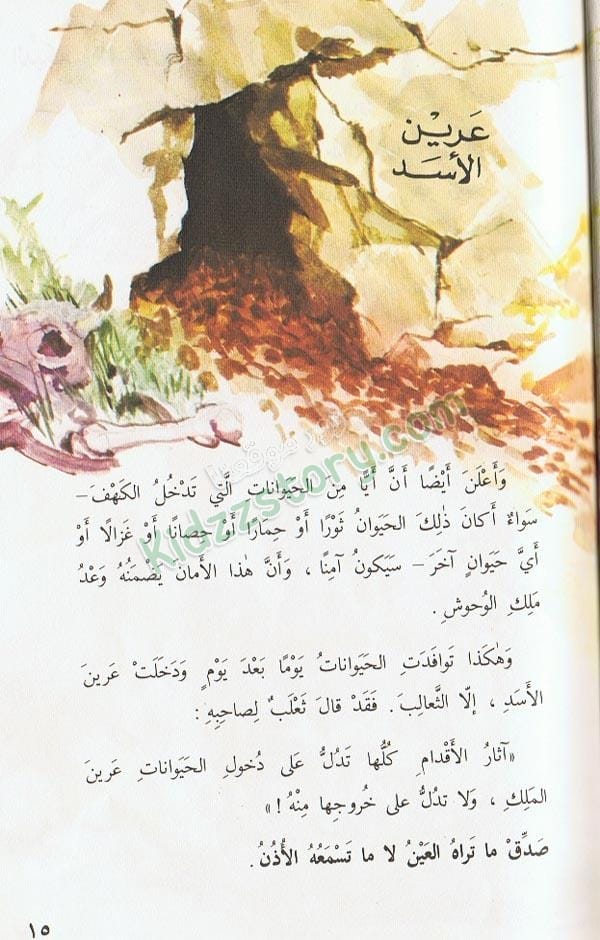 عَرين
الأسَد
وَأَعْلَنَ أَيْضًا أَنَّ أَيًّا مِنَ الحَيَواناتِ الَّتي تَدْخُلُ الكَهْفَ –
سَواءٌ أَكانَ ذٰلِكَ الحَيَوانُ ثَوْرًا أَوْ حِمارًا أَوْ حِصانًا أَوْ غَزالًا أَوْ
أَيَّ حَيَوانٍ آخَرَ – سَيَكونُ آمِنًا ، وَأَنَّ هٰذا الأَمانَ يَضْمَنُهُ وَعْدُ
مَلِكِ الوُحوشِ .
وَهٰكَذا تَوافَدَتِ الحَيَواناتُ يَوْمًا بَعْدَ يَوْمٍ وَدَخَلَتْ عَرينَ
الأَسَدِ ، إلّا الثَّعالِبَ . فَقَدْ قالَ ثَعْلَبٌ لِصاحِبِهِ :
«آثارُ الأَقْدامِ كُلُّها تَدُلُّ عَلى دُخولِ الحَيَواناتِ عَرينَ
المَلِكِ ، وَلا تَدُلُّ عَلى خُروجِها مِنْهُ ! »
صَدِّقْ ما تَراهُ العَيْنُ لا ما تَسْمَعُهُ الأُذُنُ .
١٥
Kidzzstory.com